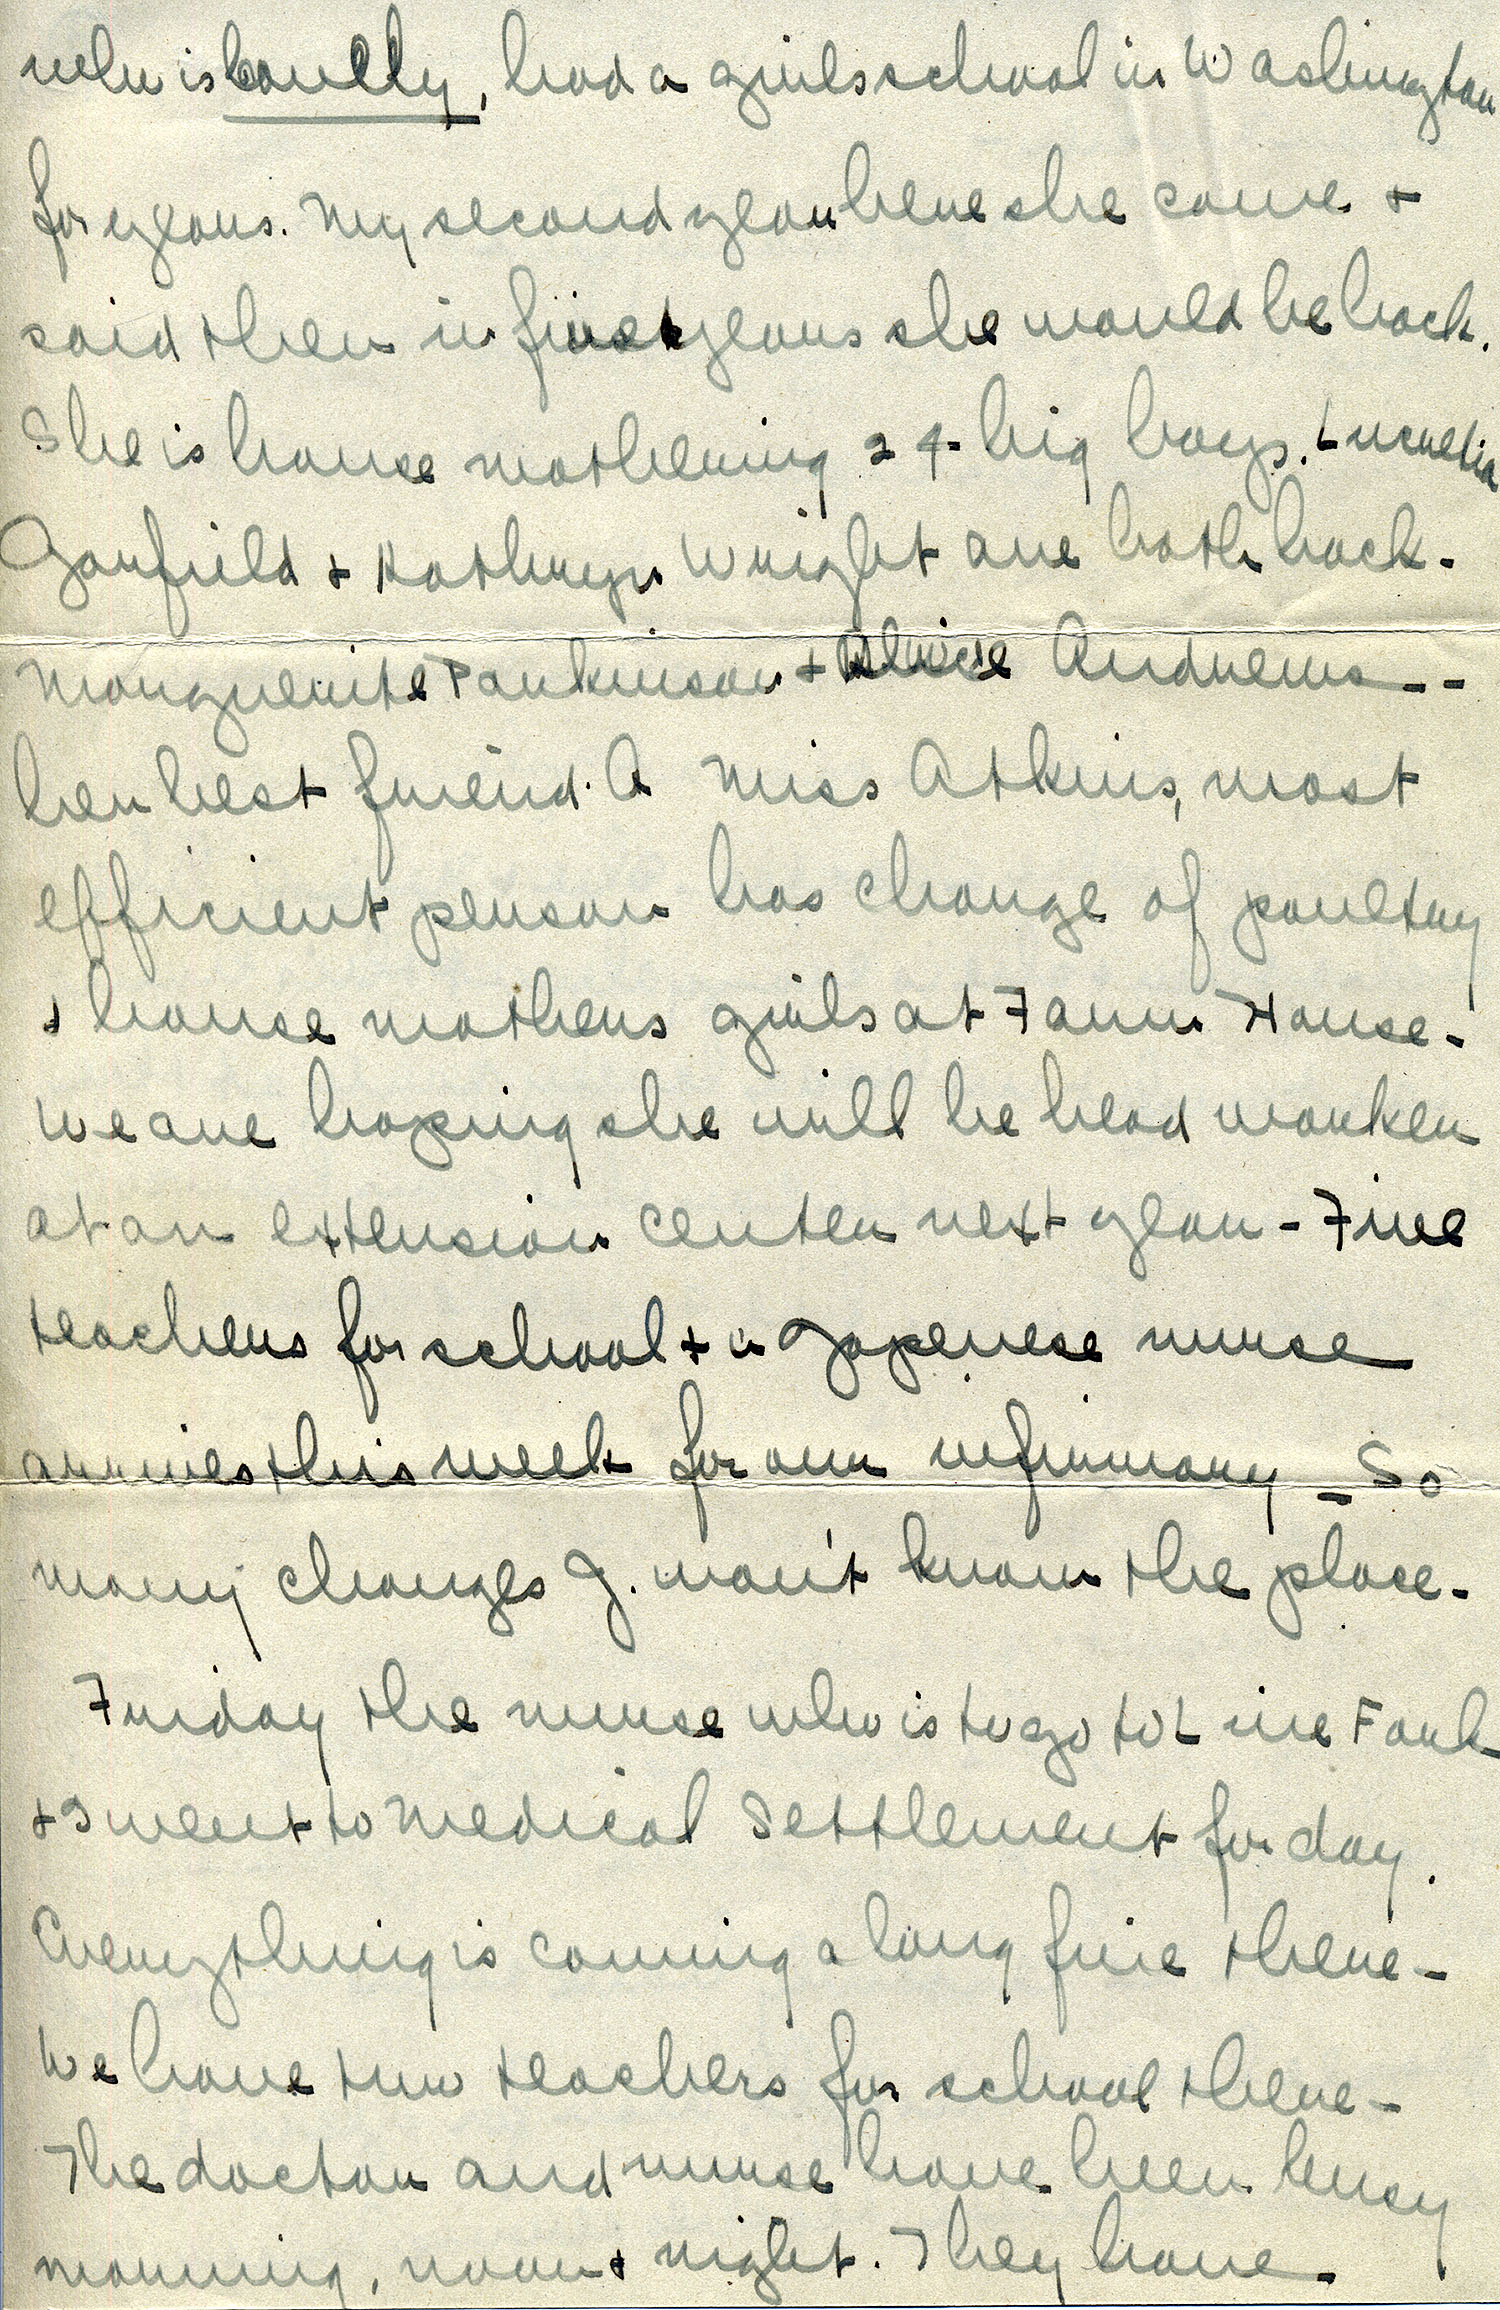 who is bully, had a girls school in Washington
for years. My second year here she came +
said then in five years she would be back.
She is house mothering 24 big boys. Lucretia
Garfield + Kathryn Wright are both back -
Marguerite Parkinson + Alice Andrews --
her best friend. A Miss Atkins, most
efficient person has charge of poultry
+ house mothers girls at Farm House -
We are hoping she will be head worker
at an extension center next year - Five
teachers for school + a Japenese nurse
arrives this week for our infirmary - So
many changes J. won't know the place -
Friday the nurse who is to go to Line Fork
+ I went to Medical Settlement for day.
Everything is coming along fine there -
We have two teachers for school there -
The doctor and nurse have been busy
morning, noon + night. They have